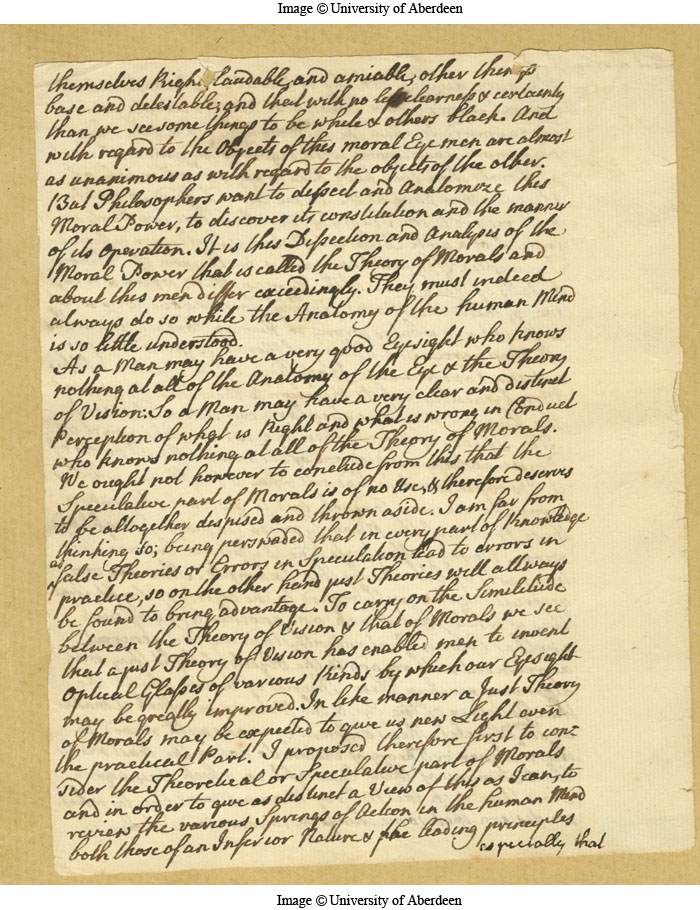 Image © University of Aberdeen
themselves Right laudable and amiable, other things
base and detestable, and that with no less clearness & certainty
than we see some things to be white & others black. And
with regard to the Objects of this moral Eye men are almost
as unanimous as with regard to the objects of the other.
But Philosophers want to dissect and Anatomize this
Moral Power, to discover its constitution and the manner
of its Operation. It is this Dissection and Analysis of the
Moral Power that is called the Theory of Morals and
about this men differ exceedingly. They must indeed
always do so while the Anatomy of the human Mind
is so little understood.
As a Man may have a very good Eyesight who knows
nothing at all of the Anatomy of the Eye & the Theory
of Vision: So a Man may have a very clear and distinct
Perception of what is Right and what is wrong in Conduct
who knows nothing at all of the Theory of Morals.
We ought not however to conclude from this that the
Speculative part of Morals is of no Use, & therefore deserves
to be altogether despised and thrown aside. I am far from
thinking so; being perswaded that in every part of Knowledge
as
false Theories or Errors in Speculation lead to errors in
practice, so on the other hand just Theories will allways
be found to bring advantage. To carry on the Similitude
between the Theory of Vision & that of Morals we see
that a just Theory of Vision has enabled men to invent
Optical Glasses of various Kinds by which our Eyesight
may be greatly improved. In like manner a Just Theory
of Morals may be expected to give us new Light even
the practical Part. I proposed therefore first to con=
sider the Theoretical or Speculative part of Morals
and in order to give as distinct a View of this as I can, to
review the various Springs of Action in the human Mind
both those of an Inferior Nature & the leading principles
especially that
Image © University of Aberdeen